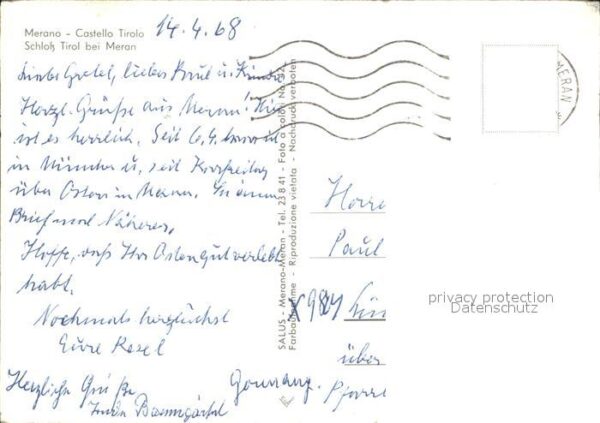 Merano - Castello Tirolo
Schloß Tirol bei Meran
14.4.68
Liebe Gretel, lieber Paul u. Kinder
Herzl. Grüße aus Meran! Hier
ist es herrlich. Seit 6.4. war ich
in München u. seit Karfreitag
über Ostern in Meran. In einem
Brief mal Näheres.
Hoffe, daß Ihr Ostern gut verlebt
habt.
Nochmals herzlichst
Eure Resel
Herzliche Grüße
Baumgärtel
SALUS - Merano-Meran - Tel. 23 8 41 - Foto a colori No.
Riproduzione vietata - Nachdruck verboten
MERAN
Herrn
Paul
8984
über
Germany.
Pfarr
privacy protection
Datenschutz